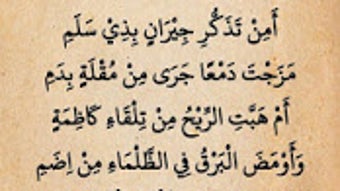 أَمِنْ تَذَكُّرِ جِيْرَانٍ بِذِيْ سَلَمِ
مَزَجْتَ دَمْعًا جَرَى مِنْ مُقْلَةٍ بِدَمِ
أَمْ هَبَّتِ الرِّيْحُ مِنْ تِلْقَاءِ كَاظِمَةٍ
وَأَوْمَضَ الْبَرْقُ فِي الظَّلْمَاءِ مِنْ اِضَمِ